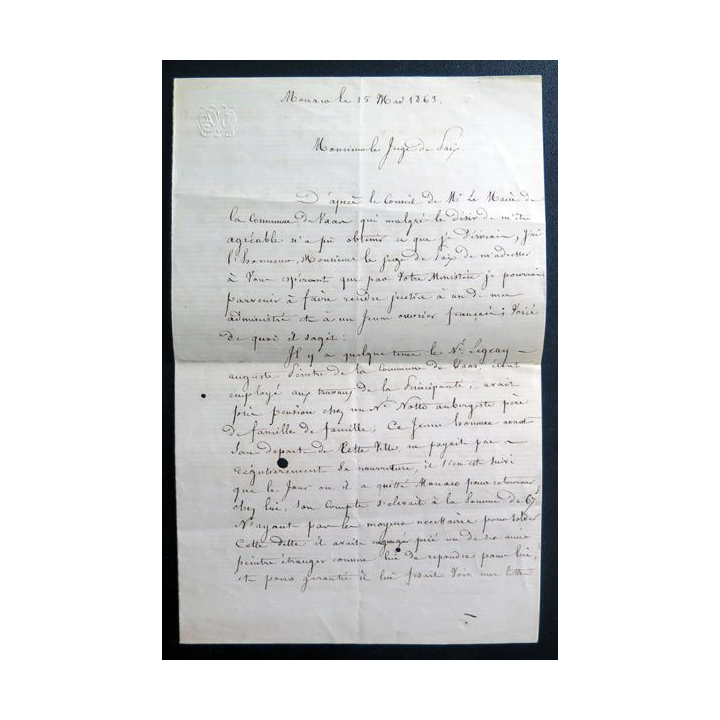 Monaco le 15 Mai 1863.
Monsieur le Juge de Paix.
D'après le Conseil de Mr Le Maire de
la Commune de Vaas qui malgré le désir de m'être
agréable n'a pü obtenir ce que je désirais, j'ai
l'honneur, Monsieur le juge de Paix de m'adresser
à Vous espérant que par Votre Ministère je pourrai
parvenir à faire rendre justice à un de mes
administré et à un Jeune ouvrier français; Voici
de quoi il sagit:
Il y a quelque temps le Né Legeay
auguste Peintre de la Commune de Vaas, étant
employé aux travaux de la Principauté, avait
pris pension chez un Né Notto aubergiste père
de famille de famille; Ce Jeune homme avant
son depart de Cette Ville, ne payait pas
Régulièrement Sa nourriture, il s'en est suivi
que le Jour ou il a quitté Monaco pour retourner
chez lui, son Compte s'elevait à la Somme de 67
N'ayant pas les moyens necéssaires pour solder
Cette dette il avait prié un de ses amis
peintre étranger comme lui de repondre pour lui,
et pour garantie il lui fesait Voir une lettre